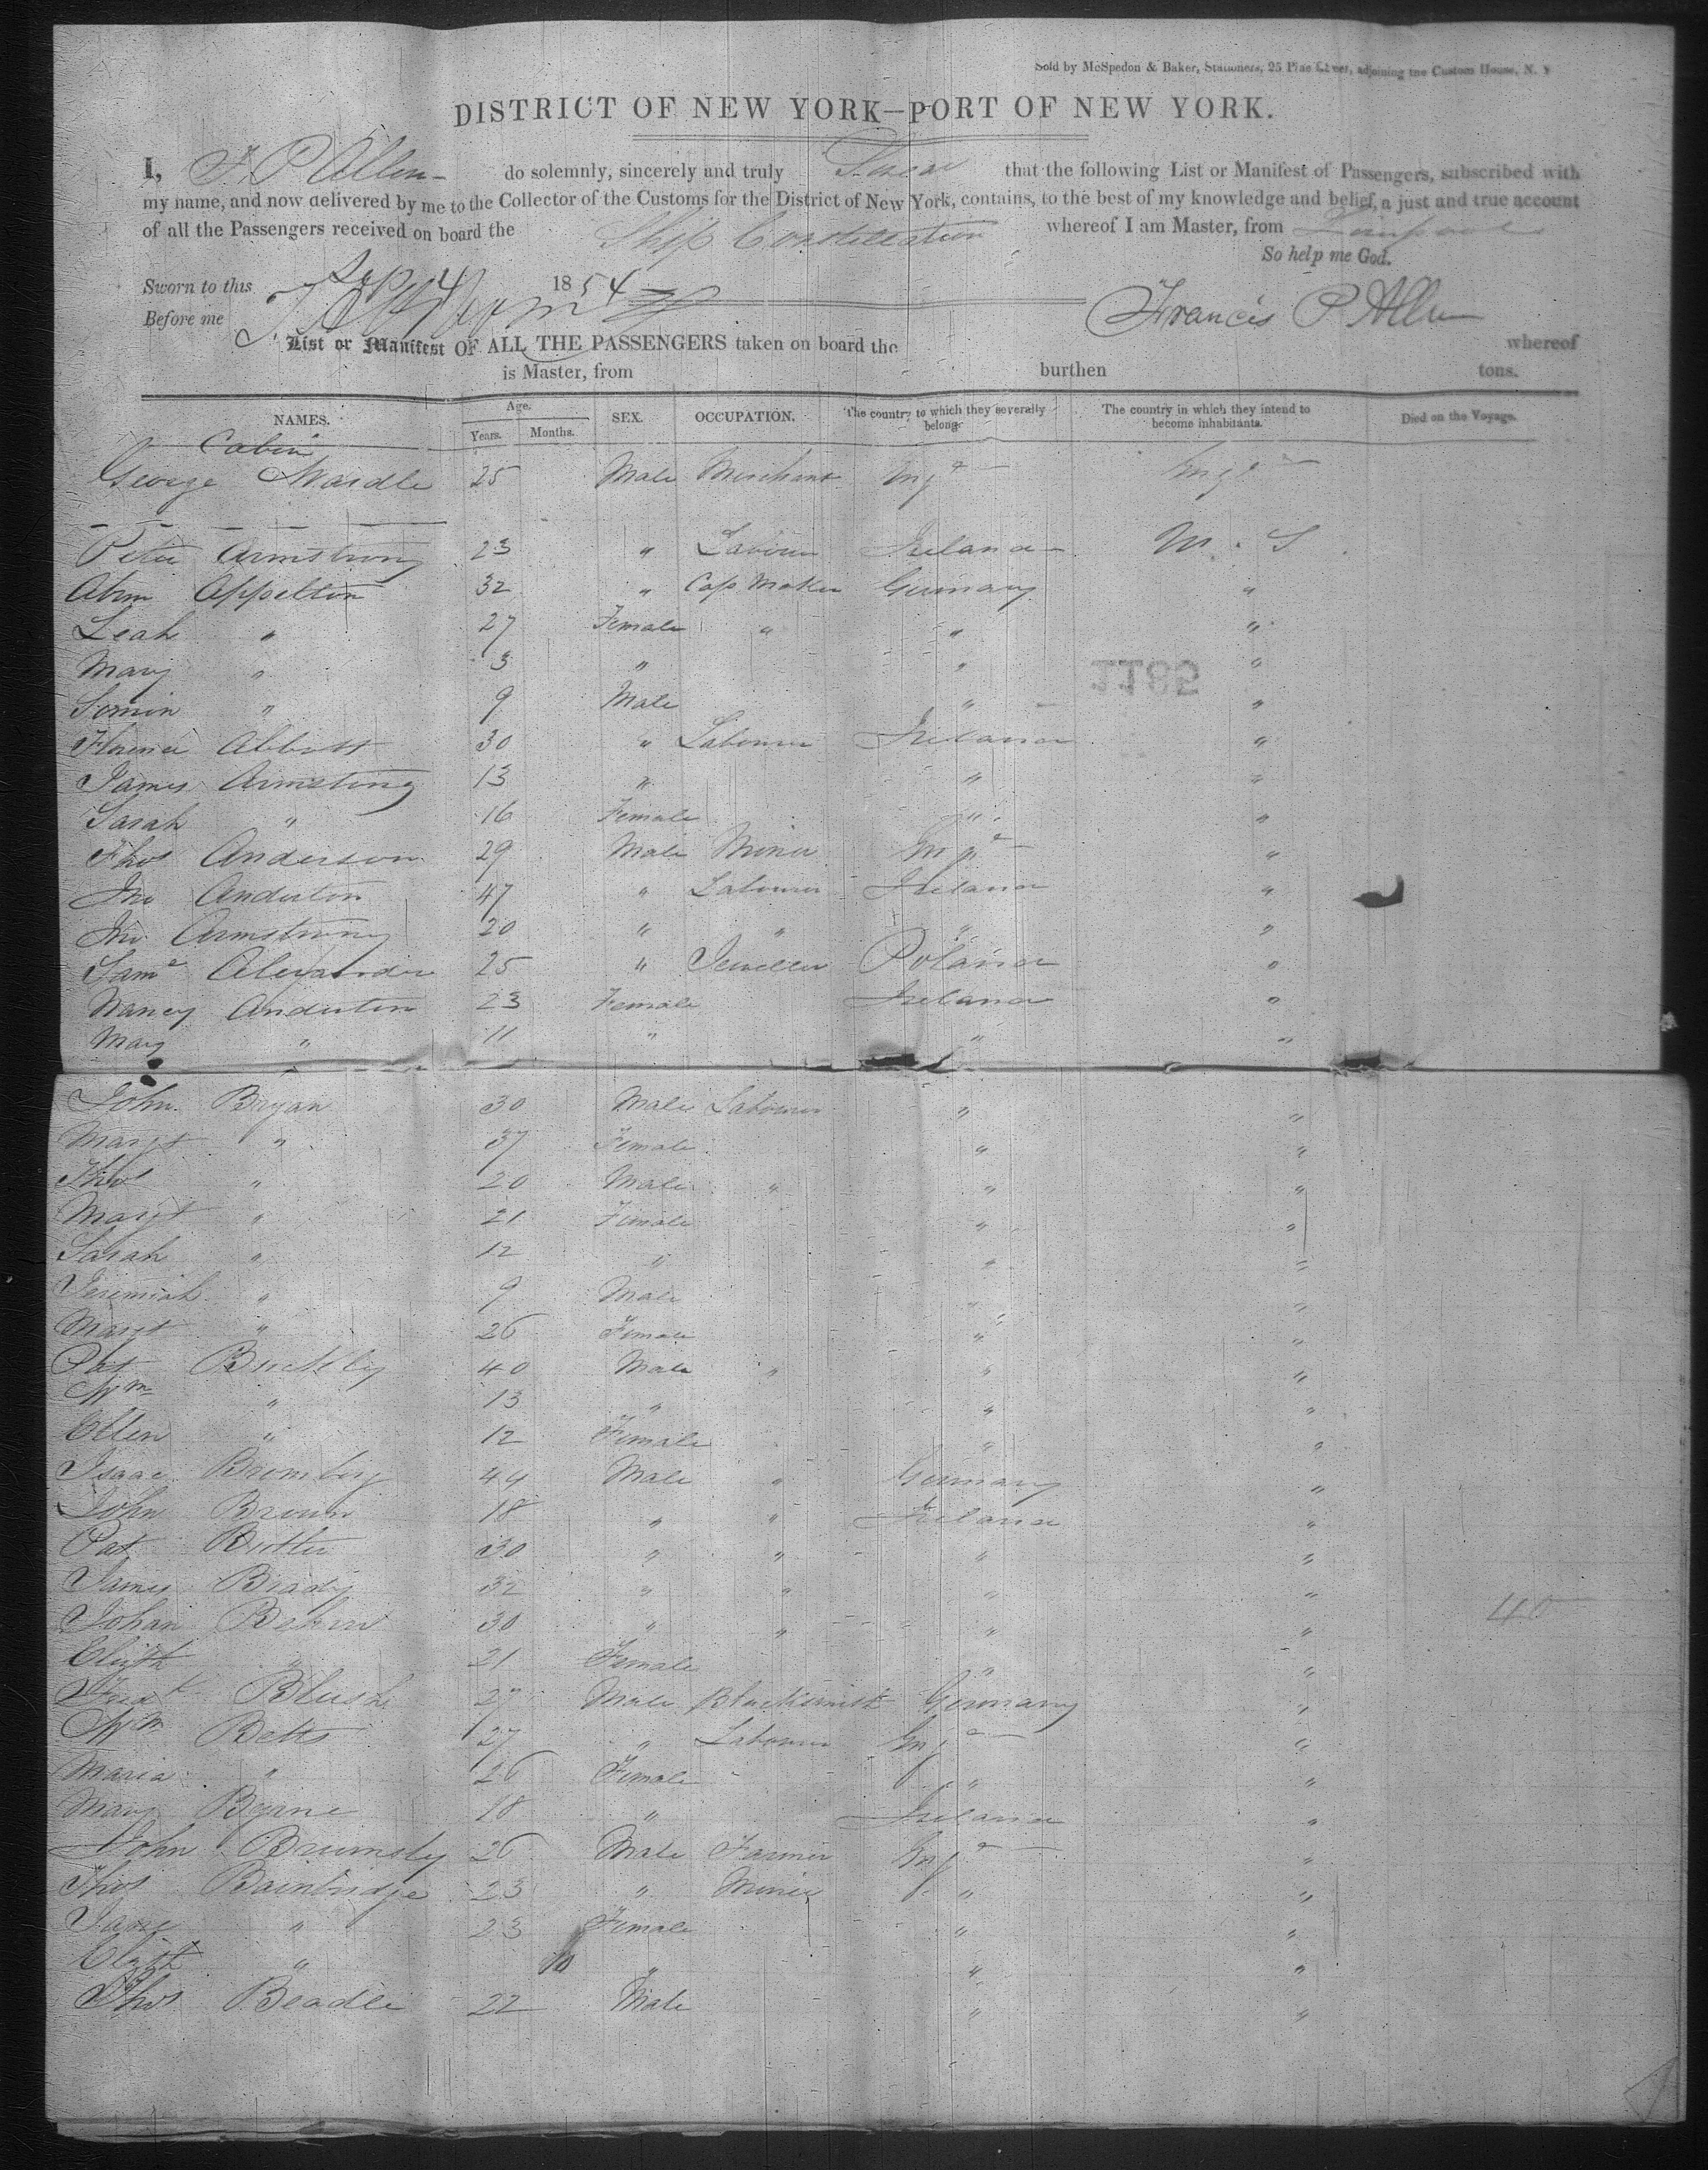 Sold by McSpedon & Baker, Stationers, 25 Pine Street, adjoining the Custom House, N. Y
DISTRICT OF NEW YORK—PORT OF NEW YORK.
I, F. P. Allen do solemnly, sincerely and truly Swear that the following List or Manifest of Passengers, subscribed with
my name, and now delivered by me to the Collector of the Customs for the District of New York, contains, to the best of my knowledge and belief, a just and true account
of all the Passengers received on board the Ship Constellation whereof I am Master, from Liverpool
So help me God.
Sworn to this Sep 4 1854
Before me
Francis P Allen
List or Manifest OF ALL THE PASSENGERS taken on board the whereof
is Master, from burthen tons.
NAMES. Age. Years. Months. SEX. OCCUPATION. The country to which they severally belong. The country in which they intend to become inhabitants. Died on the Voyage.
Cabin
George Wardle 25 Male Merchant Engd Engd
Peter Armstrong 23 " Labourer Ireland U. S
Abm Appelton 32 " Cap Maker Germany "
Leah " 27 Female " " "
Mary " 3 " " "
" 9 Male " "
Abbott 30 " Labourer Ireland "
James Armstrong 13 " " "
Sarah " 16 Female " "
Thos Anderson 29 Male Miner Engd "
Jno Anderton 47 " Labourer Ireland "
Jno Armstrong 20 " " " "
Saml Alexander 25 " Jeweller Poland "
Nancy Anderton 23 Female Ireland "
Mary " 11 " " "
1185
John Bryan 30 Male Labourer " "
Margt " 37 Female " "
Thos " 20 Male " " "
Margt " 21 Female " "
Sarah " 12 " " "
Jeremiah " 9 Male " "
Margt " 26 Female " "
Pat Buckley 40 Male " " "
Wm " 13 " " "
Ellen " 12 Female " "
Isaac Bromberg 44 Male " Germany "
John Brown 18 " " Ireland "
Pat Butler 30 " " " "
James Brady 32 " " " "
Johan 30 " " " "
40
Elizth " 21 Female " "
Fredk Blush 27 Male Blacksmith Germany "
Wm Betts 27 " Labourer Engd "
Maria " 26 Female " "
Mary Byrne 18 " Ireland "
John Brumsby 26 Male Farmer Engd "
Thos Bainbridge 23 " Miner " "
Jane " 23 Female " "
Elizth " 10 " " "
Thos Beadle 22 Male " "